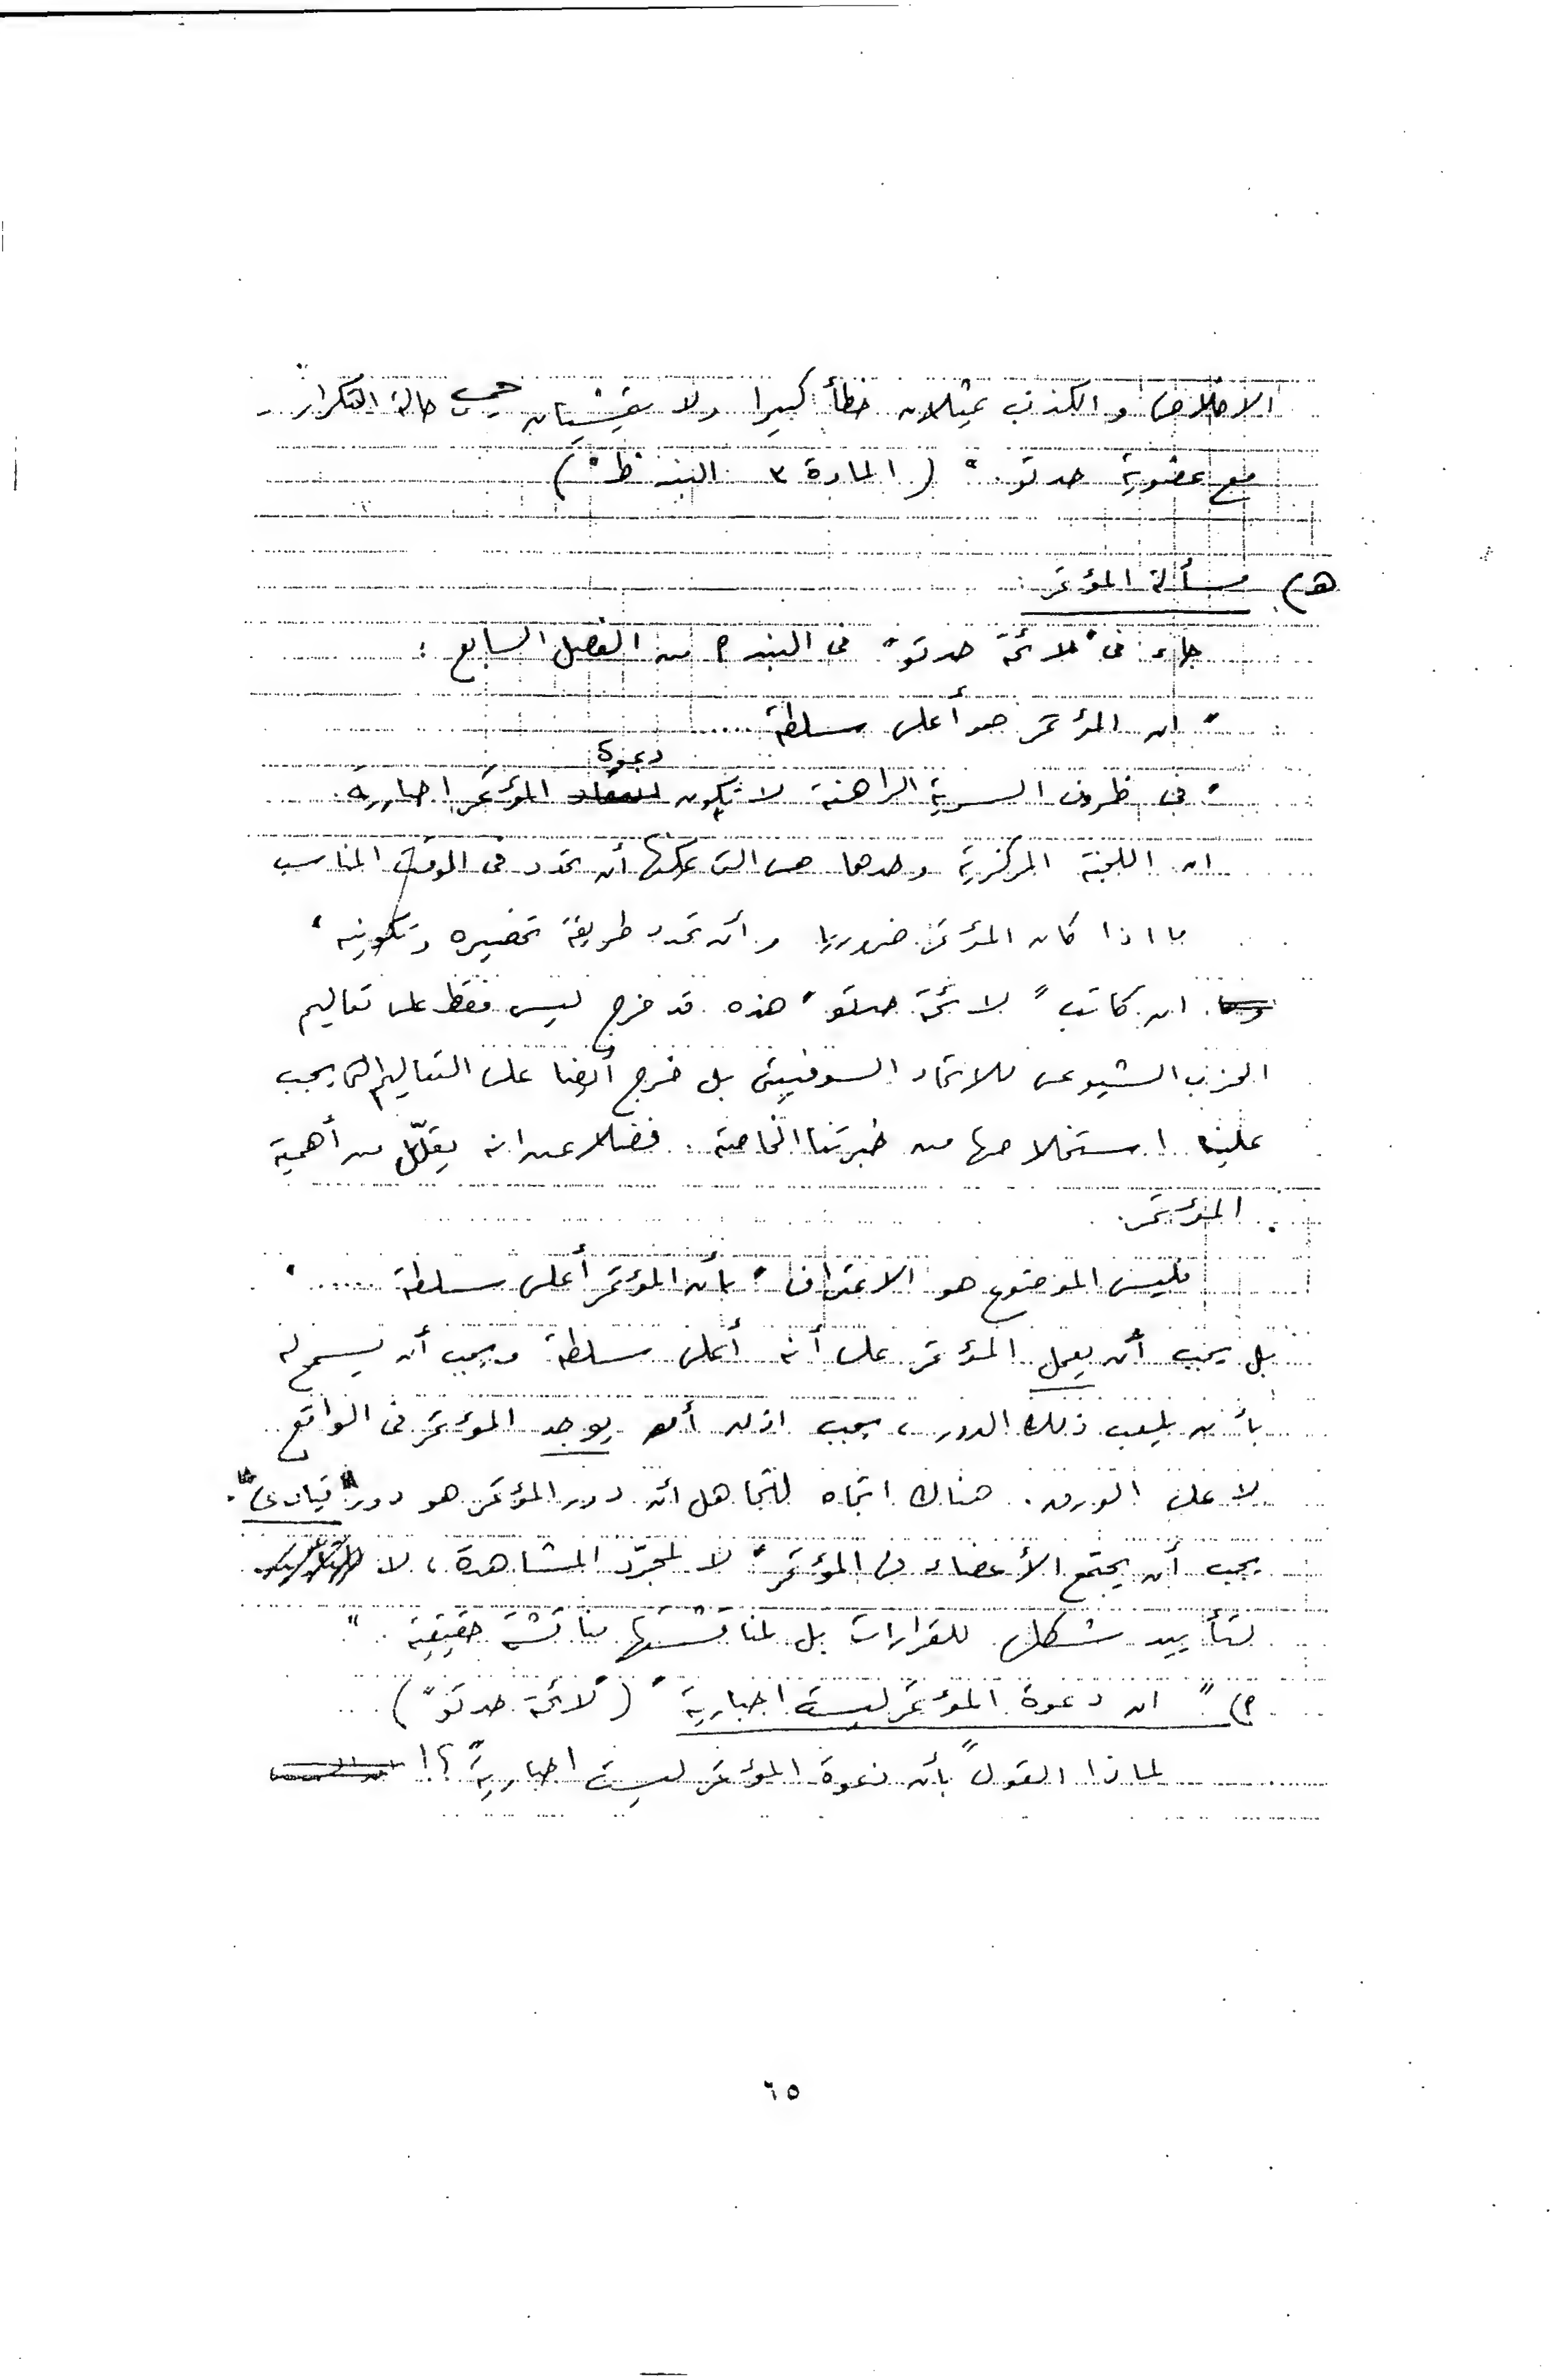 الاخلاص والكذب يمثلان خطأ كبيرا ولا يتمشيان في حالة التكرار
مع عضوية حدتو. " (المادة ٣ البند "ظ")
هـ) مسألة المؤتمر:
جاء في "لائحة حدتو" في البند ٢ من الفصل السابع :
" ان المؤتمر هو أعلى سلطة .....
" في ظروف السرية الراهنة لا تكون دعوة المؤتمر اجبارية.
ان اللجنة المركزية وحدها هي التي يمكنها أن تحدد في الوقت المناسب
ما اذا كان المؤتمر ضروريا وأن تحدد طريقة تحضيره وتكوينه "
ان كاتب " لائحة حدتو " هذه قد خرج ليس فقط على تعاليم
الحزب الشيوعي للاتحاد السوفييتي بل خرج أيضا على التعاليم التي يجب
علينا استخلاصها من خبرتنا الخاصة. فضلا عن انه يقلّل من أهمية
المؤتمر.
فليس الموضوع هو الاعتراف " بأن المؤتمر أعلى سلطة ...... "
بل يجب أن يعمل المؤتمر على أنه أعلى سلطة ويجب أن يسمح له
بأن يلعب ذلك الدور، يجب اذن أن يوجد المؤتمر في الواقع
لا على الورق. هناك اتجاه لتجاهل أن دور المؤتمر هو دور "قيادى".
يجب أن يجتمع الأعضاء في المؤتمر " لا لمجرّد المشاهدة، لا
لتأييد شكلى للقرارات بل لمناقشتها مناقشة حقيقية. "
٢) " ان دعوة المؤتمر ليست اجبارية " ("لائحة حدتو")
لماذا القول "بأن دعوة المؤتمر ليست اجبارية" ؟!
٦٥